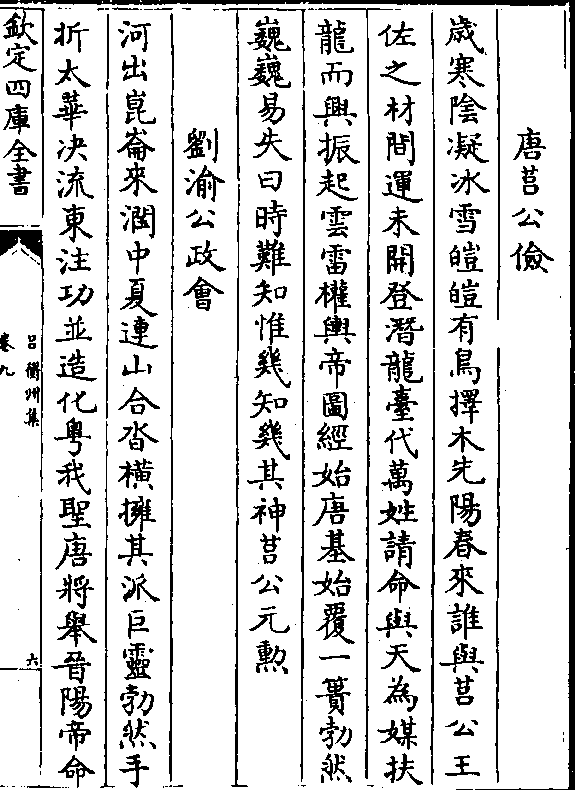 唐莒公儉
歲寒陰凝冰雪皚皚有鳥擇木先陽春來誰與莒公王
佐之材間運未開登潛龍臺代萬姓請命與天為媒扶
龍而興振起雲雷權輿帝圖經始唐基始覆一簣勃然
巍巍易失曰時難知惟㡬知㡬其神莒公元勲
劉渝公政會
河出崑崙來潤中夏連山合沓橫擁其派巨靈勃然手
折太華决流東注功並造化粤我聖唐將舉晉陽帝命
欽定四庫全書
呂衡州集
卷九
六